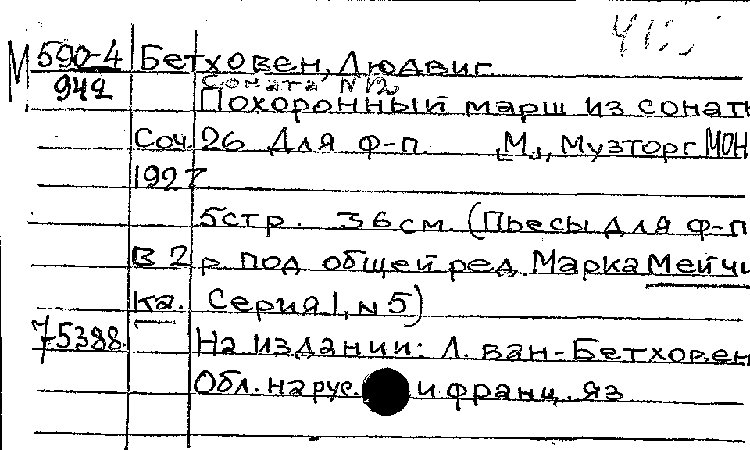 М 590-4 Бетховен, Людвиг.
942 Соната N12
Похоронный марш из сонат
Соч. 26 Для ф-п. [М.], Музторг МОН
1927
5стр. 36см. (Пьесы для ф-п
В 2 р. под общей ред. Марка Мейчи
ка. Серия I, N 5)
75388. На издании: Л. ван-Бетховен
Обл. на рус. и франц. яз